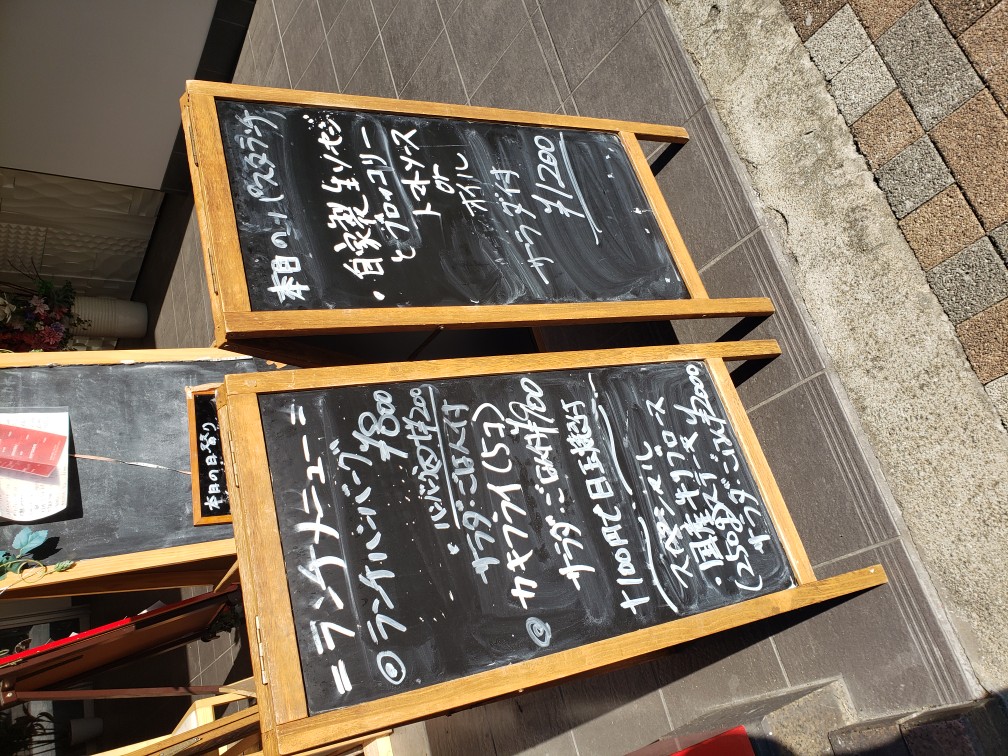 本日のパスタランチ
・自家製生ソーセージ
とブロッコリー
トマトソース
or
オイル
サラダ付
¥1200
=ランチメニュー=
◎ランチハンバーグ ¥800
ハンバーグ ¥1200
・サラダ ごはん付
◎カキフライ(5コ)
サラダ ごはん付 ¥900
+100円で目玉焼き付
スペシャル
・国産牛リブロース
(250g)ステーキ
サラダ ごはん付 ¥2000
本日の日替り